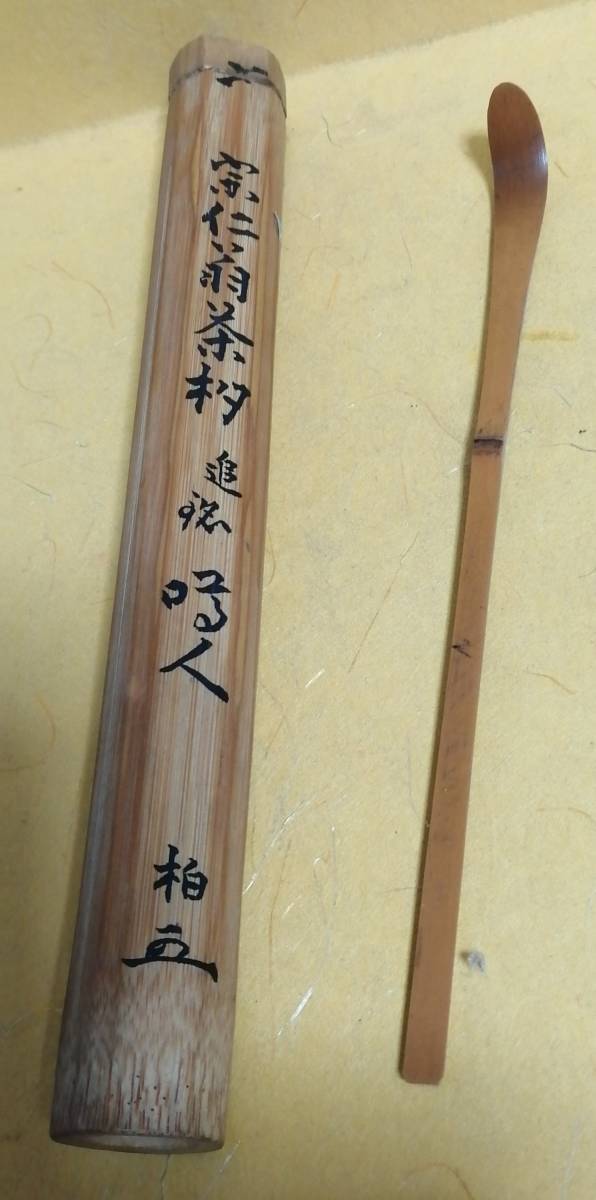 宗仁翁茶杓
追銘
噂人
柏叟